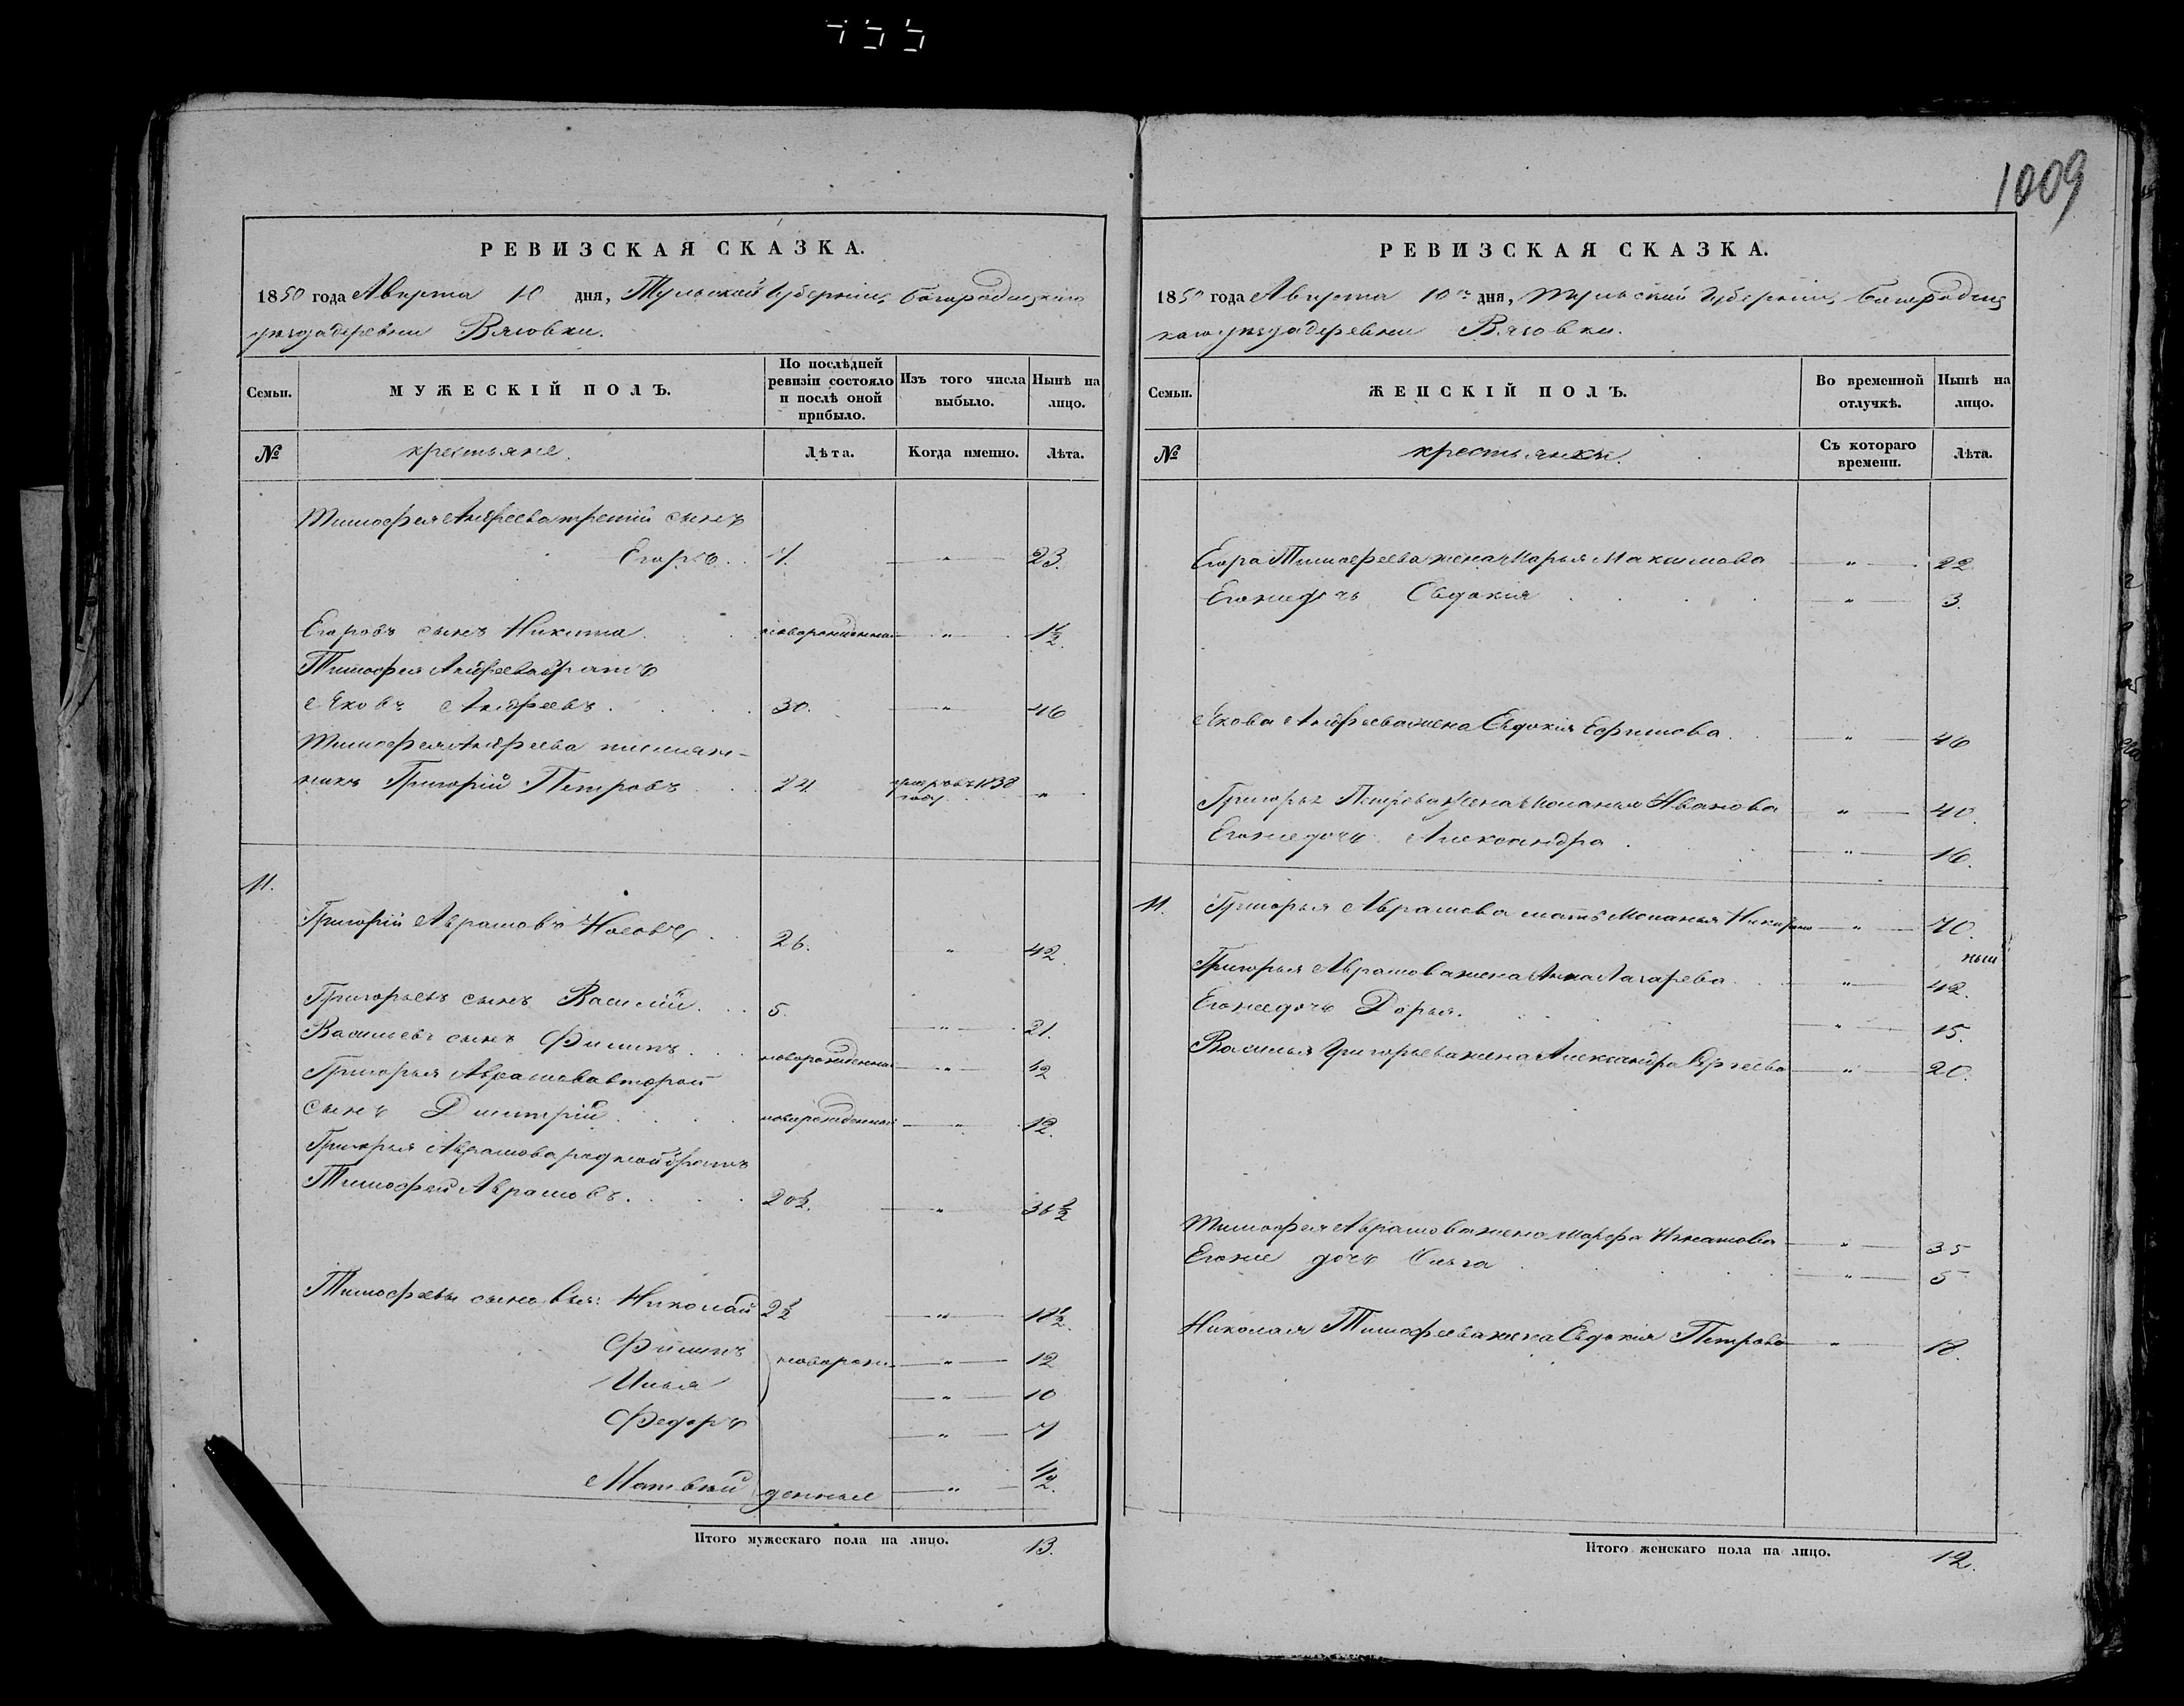 1009
РЕВИЗСКАЯ СКАЗКА.
1850 года Августа 10 дня, Тульской Губерніи, Богородицкаго
уезда деревни Вязовки.
Семьи.
МУЖЕСКІЙ ПОЛЪ.
По послѣдней ревизіи состояло и послѣ оной прибыло.
Изъ того числа выбыло.
Нынѣ на лицо.
№
крестьяне.
Лѣта.
Когда именно.
Лѣта.
Тимофея Андреева третій сынъ
Егоръ. . 7. " 23.
Егоровъ сынъ Никита. новорожденной " 1½.
Тимофея Андреева братъ
Яковъ Андреевъ. 30. " 46
Тимофея Андреева племян-
никъ Григорій Петровъ 24 умеръ въ 1838 году "
11.
Григорій Аврамовъ Носовъ. 26. " 42.
Григорьевъ сынъ Василій. 5. " 21.
Васильевъ сынъ Филипъ. новорожденной " ½
Григорья Аврамова второй
сынъ Дмитрій. новорожденной " 12.
Григорья Аврамова родной братъ
Тимофей Аврамовъ. 20½. " 36½
Тимофеевы сыновья: Николай 2½ " 18½.
Филипъ новорож- " 12
Илья " 10
Федоръ " 7
Матвѣй денные " ½.
Итого мужескаго пола на лицо. 13.
РЕВИЗСКАЯ СКАЗКА.
1850 года Августа 10го дня, Тульской Губерніи, Богородиц
каго уезда деревни Вязовки.
Семьи.
ЖЕНСКІЙ ПОЛЪ.
Во временной отлучкѣ.
Нынѣ на лицо.
№
крестьянки.
Съ котораго времени.
Лѣта.
Егора Тимофеева жена Марья Максимова " 22
Егоже дочь Евдокия " 3.
Якова Андреева жена Евдокія Ефимова. " 46
Григорья Петрова жена Маланья Иванова " 40.
Егоже дочь Александра. " 16.
11. Григорья Аврамова мать Меланья " 70.
Григорья Аврамова жена Анна Лазарева " 42.
Егоже дочь Дарья. " 15.
Василья Григорьева жена Александра Сергеева " 20.
Тимофея Аврамова жена Марфа Игнатова " 35
Егоже дочь Ольга " 5
Николая Тимофеева жена Евдокия Петрова " 18.
Итого женскаго пола на лицо. 12.